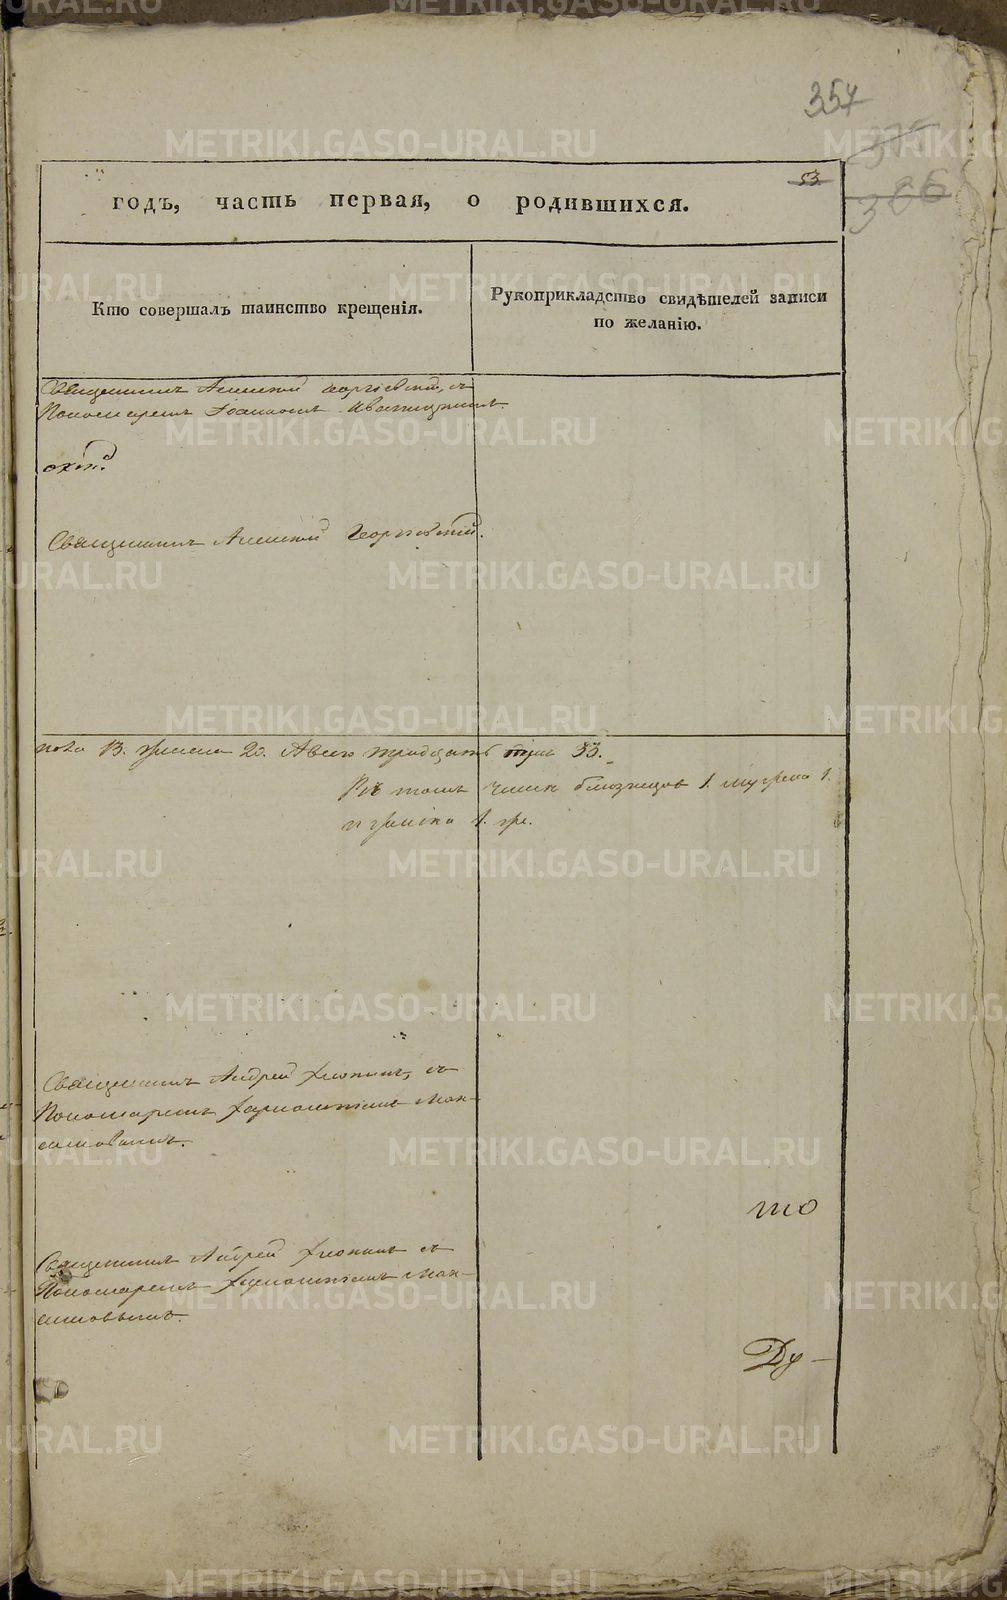 357
375
366
53.
годъ, часть первая, о родившихся.
Кто совершалъ таинство крещенія.
Рукоприкладство свидѣтелей записи
по желанію.
Священникъ Алексѣй Георгіевскій, съ
Пономаремъ Іоанномъ
Священникъ Алексѣй Георгіевскій.
пола 13. женска 20. А всего тридцать три 33.
Въ томъ числѣ близнецов 1. мужеска 1.
и женска 1. же.
Священникъ Андрей съ
Пономаремъ Мак-
симовымъ.
то
Священникъ Андрей съ
Пономаремъ Мак-
симовымъ.
Ду-
METRIKI.GASO-URAL.RU